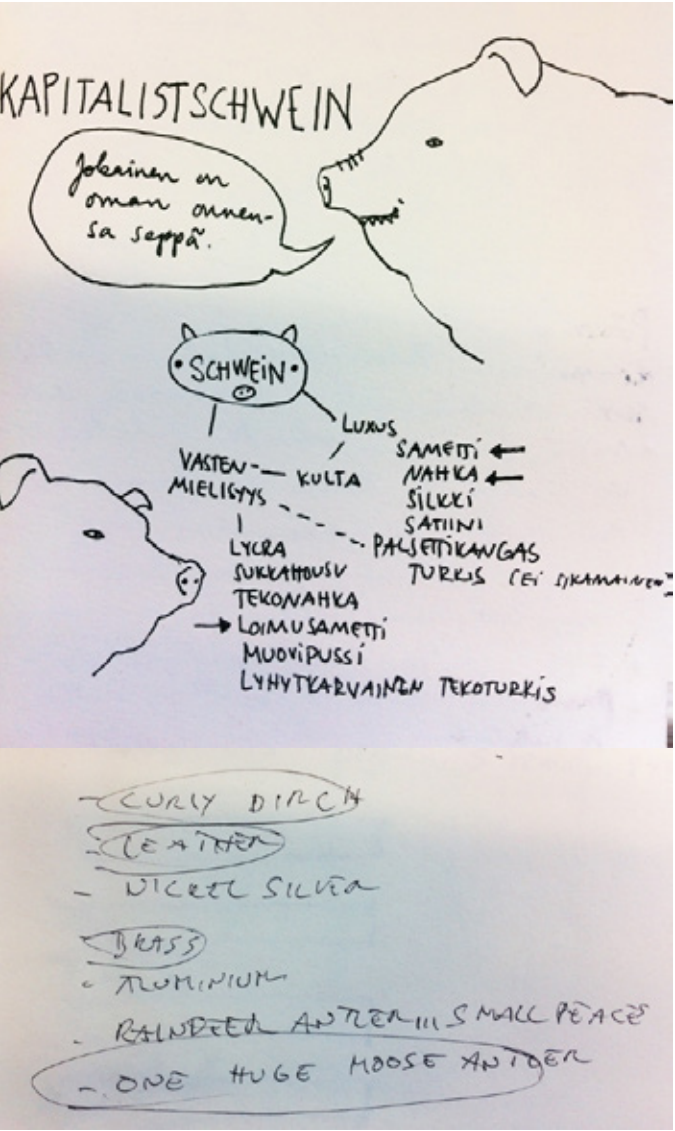 KAPITALISTSCHWEIN
Jokainen on
oman onnen-
sa seppä.
SCHWEIN
LUXUS
VASTEN-
MIELISYYS
KULTA
SAMETTI
NAHKA
SILKKI
SATIINI
PALJETTIKANGAS
TURKIS (EI SIKAMAINEN
LYCRA
SUKKAHOUSU
TEKONAHKA
LOIMUSAMETTI
MUOVIPUSSI
LYHYTKARVAINEN TEKOTURKIS
- CURLY BIRCH
- LEATHER
- NICKEL SILVER
- BRASS
- ALUMINIUM
- RAINDEER ANTLER... SMALL PEACES
- ONE HUGE MOOSE ANTLER